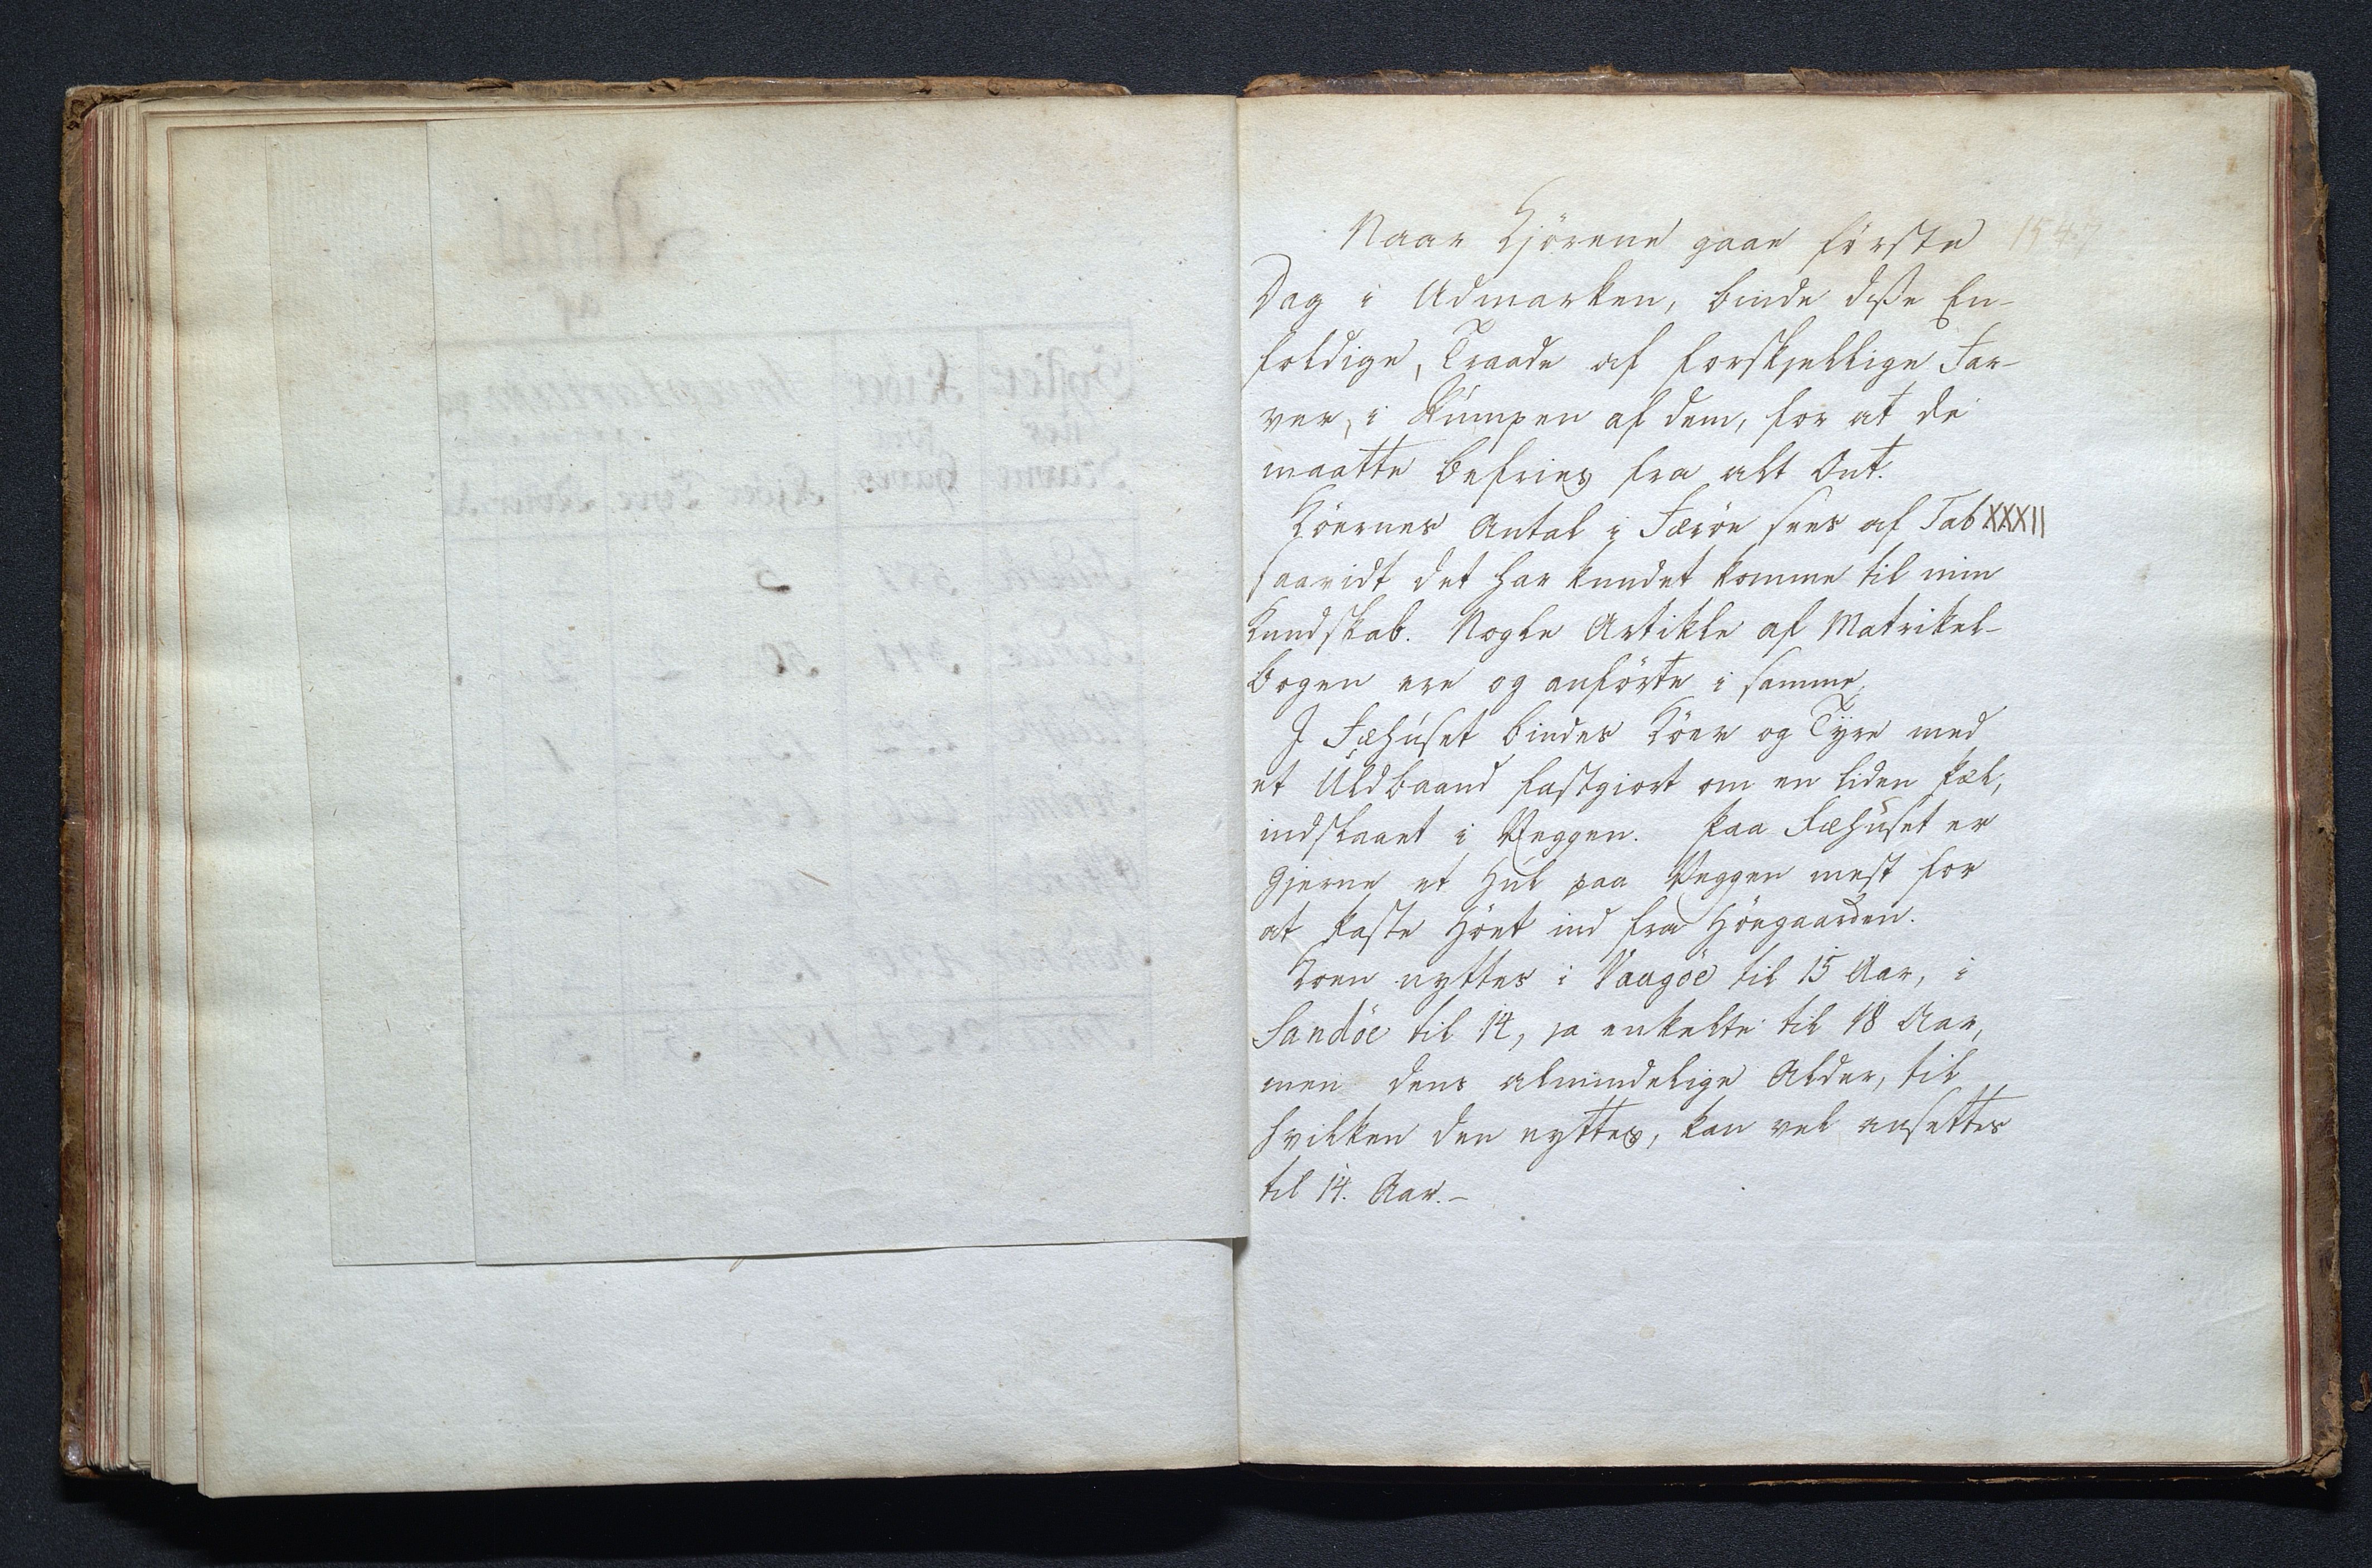 Naar Kjörene gaae förste 1547
Dag i Udmarken, binde disse En-
foldige, Traade af forskjellige Far-
ver, i Rumpen af dem, for at de
maatte befries fra alt Ont.
Köernes Antal i Færöe sees af Tab XXXII
saavidt det har kundet komme til min
Kundskab. Nogle Artikle af Matrikel-
bogen ere og anförte i samme.
I Fæhuset bindes Köer og Tyre med
et Uldbaand fastgiort om en liden Pæl,
indslaaet i Veggen. Paa Fæhuset er
gjerne et Hul paa Veggen mest for
at kaste Höet ind fra Höegaarden.
Koen nyttes i Vaagöe til 15 Aar, i
Sandöe til 14, ja enkelte til 18 Aar,
men dens almindelige Alder, til
hvilken den nyttes, kan vel ansettes
til 14. Aar.-